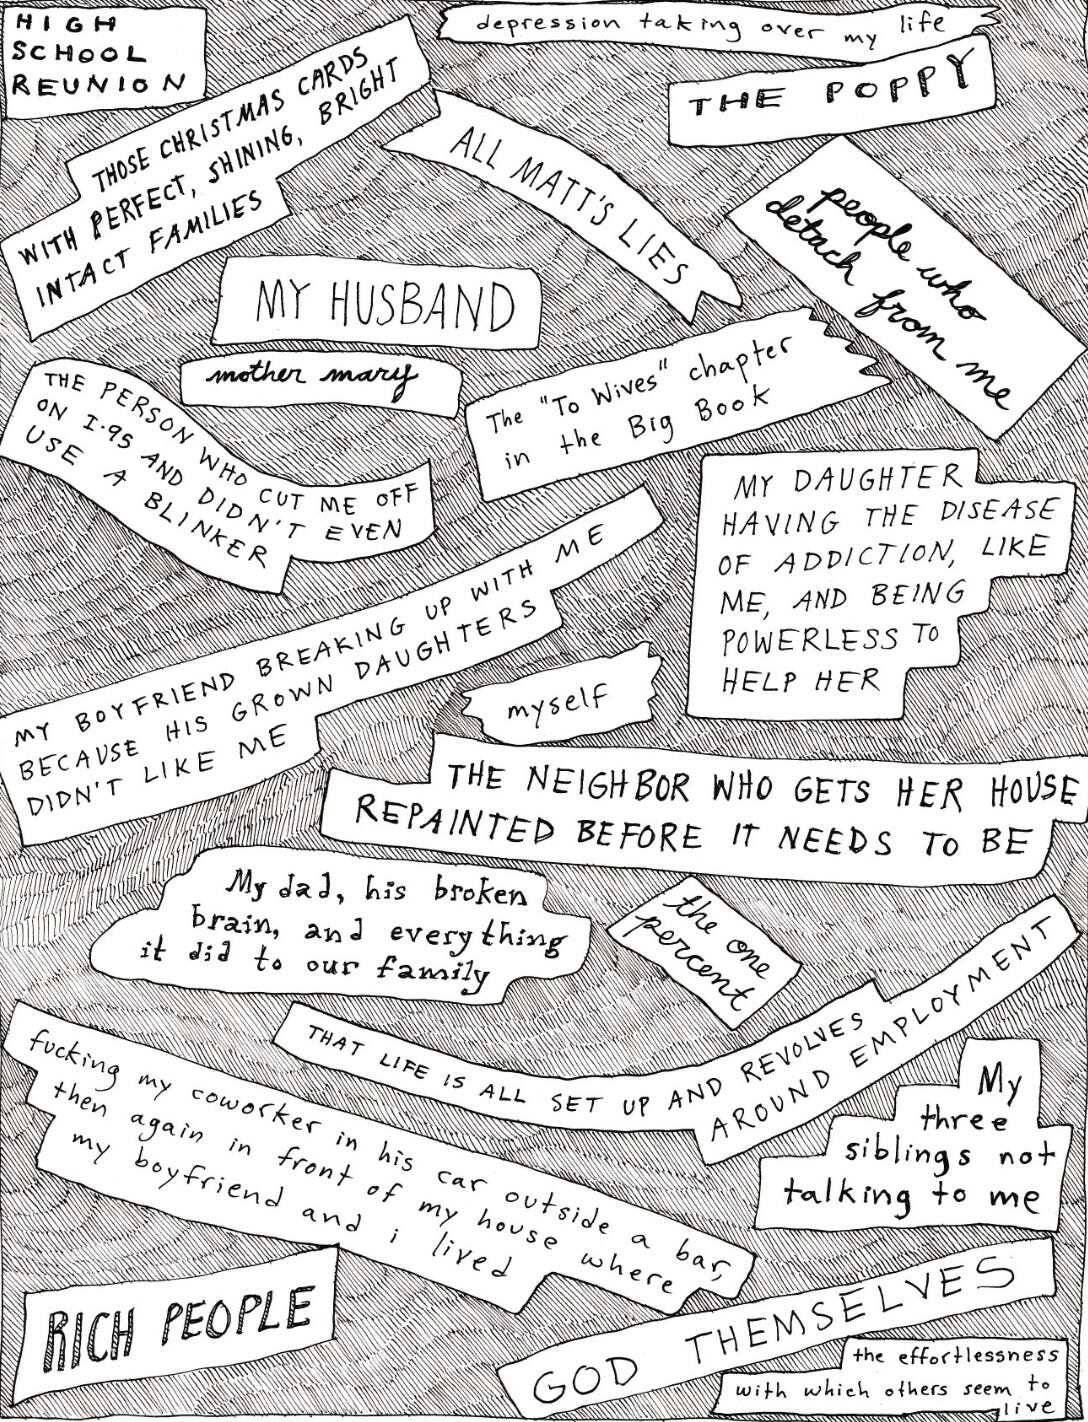 HIGH
SCHOOL
REUNION
depression taking over my life
THE POPPY
THOSE CHRISTMAS CARDS
WITH PERFECT, SHINING, BRIGHT
INTACT FAMILIES
ALL MATT'S LIES
people who
detach from me
MY HUSBAND
mother mary
The "To Wives" chapter
in the Big Book
THE PERSON WHO CUT ME OFF
ON I-95 AND DIDN'T EVEN
USE A BLINKER
MY DAUGHTER
HAVING THE DISEASE
OF ADDICTION, LIKE
ME, AND BEING
POWERLESS TO
HELP HER
MY BOYFRIEND BREAKING UP WITH ME
BECAUSE HIS GROWN DAUGHTERS
DIDN'T LIKE ME
myself
THE NEIGHBOR WHO GETS HER HOUSE
REPAINTED BEFORE IT NEEDS TO BE
My dad, his broken
brain, and everything
it did to our family
the one
percent
THAT LIFE IS ALL SET UP AND REVOLVES
AROUND EMPLOYMENT
fucking my coworker in his car outside a bar,
then again in front of my house where
my boyfriend and i lived
My
three
siblings not
talking to me
RICH PEOPLE
GOD THEMSELVES
the effortlessness
with which others seem to
live